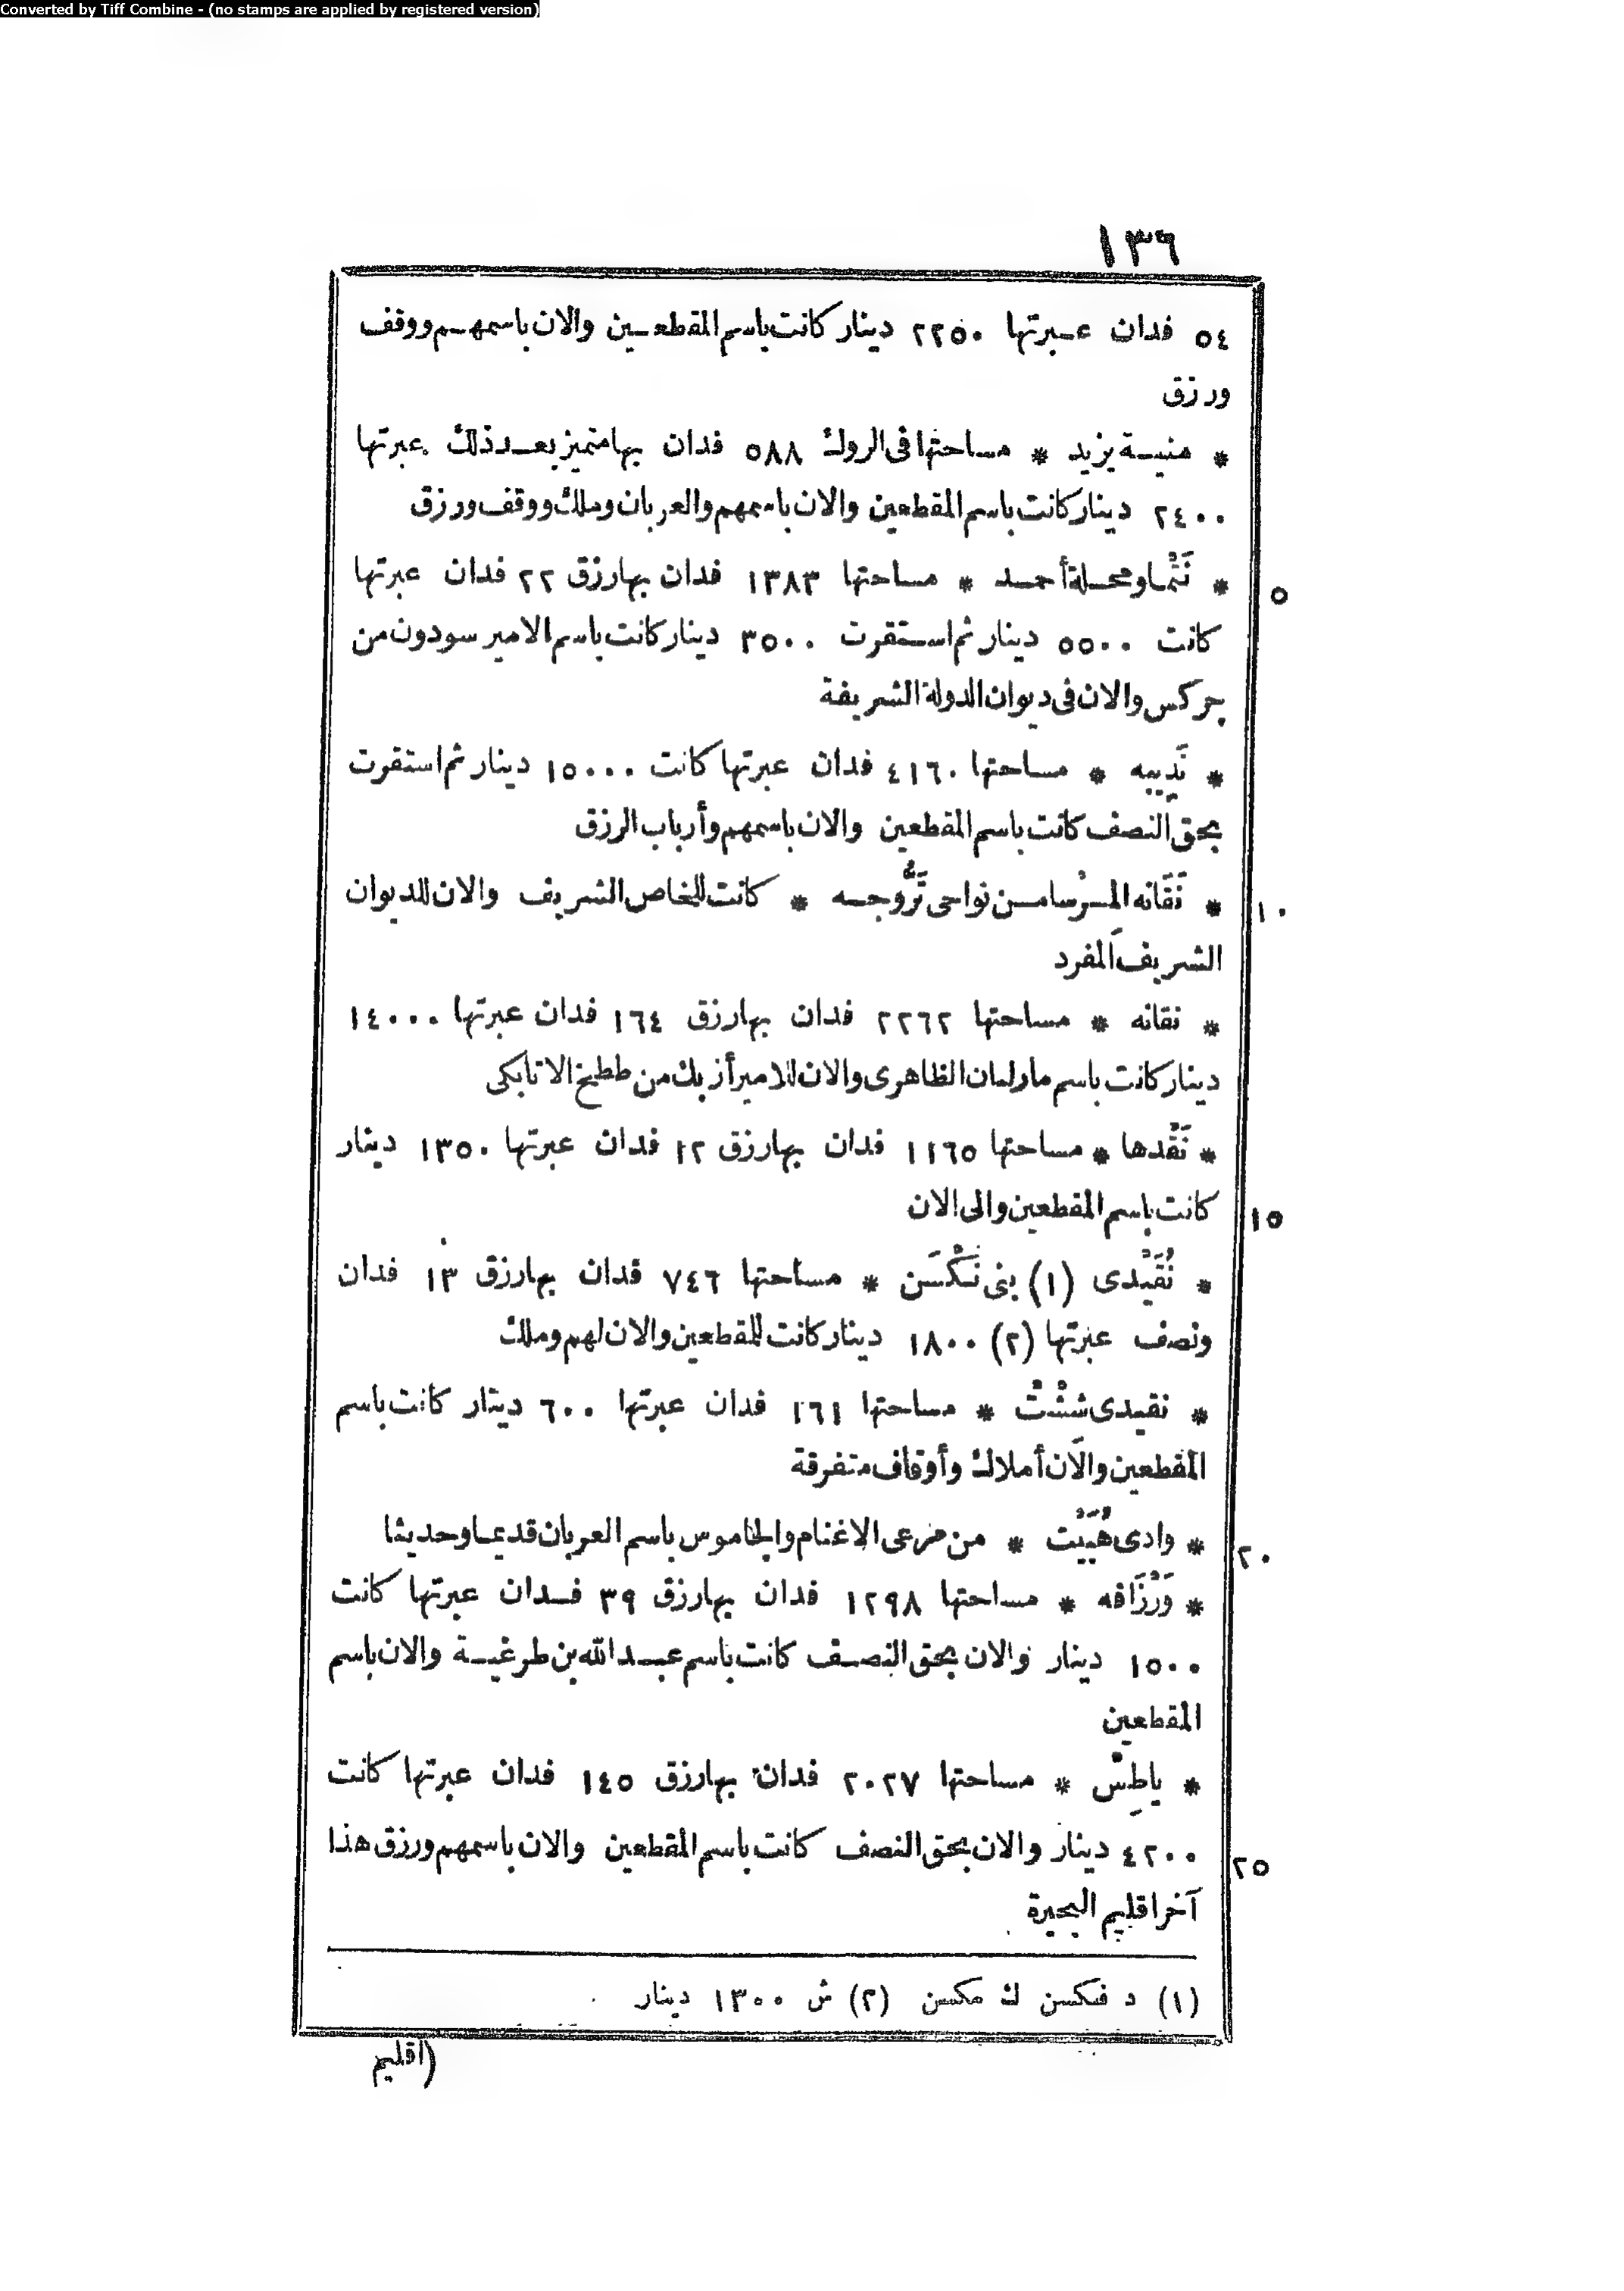 Converted by Tiff Combine - (no stamps are applied by registered version)
١٣٦
٥٤ فدان عبرتها ٢٢٥٠ دينار كانت باسم المقطعين والان باسمهم ووقف
ورزق
* منية يزيد * مساحتها فى الروك ٥٨٨ فدان بها متميز بعد ذلك عبرتها
٢٤٠٠ دينار كانت باسم المقطعين والان باسمهم والعربان وملك ووقف ورزق
* نَتْما ومحلة أحمد * مساحتها ١٣٨٣ فدان بها رزق ٢٢ فدان عبرتها
٥
كانت ٥٥٠٠ دينار ثم استقرت ٣٥٠٠ دينار كانت باسم الامير سودون من
جركس والان فى ديوان الدولة الشريفة
* نَدِيبه * مساحتها ٤١٦٠ فدان عبرتها كانت ١٥٠٠٠ دينار ثم استقرت
بحق النصف كانت باسم المقطعين والان باسمهم وأرباب الرزق
* نَقَانه المرْسا من نواحى تَرُّوجه * كانت للخاص الشريف والان للديوان
١٠
الشريف المفرد
* نقانه * مساحتها ٢٢٦٢ فدان بها رزق ١٦٤ فدان عبرتها ١٤٠٠٠
دينار كانت باسم الظاهرى والان للامير أزبك من ططخ الاتابكى
* نَقْدها * مساحتها ١١٦٥ فدان بها رزق ١٢ فدان عبرتها ١٣٥٠ دينار
كانت باسم المقطعين والى الان
١٥
* نُقَيْدى (١) بنى نَكْسَن * مساحتها ٧٤٦ فدان بها رزق ١٣ فدان
ونصف عبرتها (٢) ١٨٠٠ دينار كانت للمقطعين والان لهم وملك
* نقيدى شِشْتْ * مساحتها ١٦١ فدان عبرتها ٦٠٠ دينار كانت باسم
المقطعين والآن أملاك وأوقاف متفرقة
* وادى هُبَيْت * من مرعى الاغنام والجاموس باسم العربان قديما وحديثا
٢٠
* وَرْزَافه * مساحتها ١٢٩٨ فدان بها رزق ٣٩ فدان عبرتها كانت
١٥٠٠ دينار والان بحق النصف كانت باسم عبد الله بن طرغية والان باسم
المقطعين
* ياطِسْ * مساحتها ٢٠٢٧ فدان بها رزق ١٤٥ فدان عبرتها كانت
٤٢٠٠ دينار والان بحق النصف كانت باسم المقطعين والان باسمهم ورزق هذا
٢٥
آخر اقليم البحيرة
(١) د فكسن ك مكسن (٢) ش ١٣٠٠ دينار
(اقليم